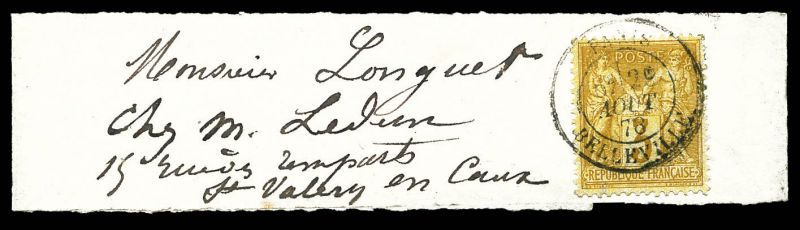 Monsieur Longuet
Chez M. Ledun
15 rue des remparts
St Valery en Caux
PARIS
POSTE
AOUT
78
BELLEVILLE
REPUBLIQUE FRANÇAISE